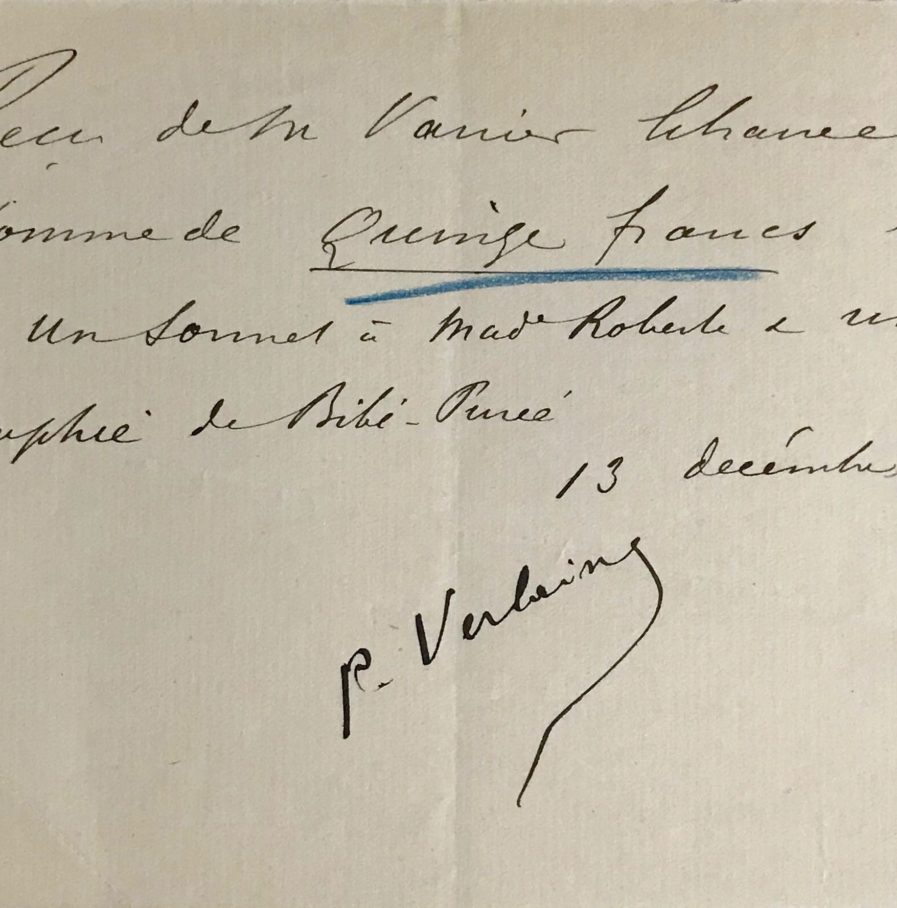 Reçu de M Vanier
omme de Quinze francs
un Sonnet à Made Roberte & un
aphie de Bibi-Purée
13 décembre
P. Verlaine